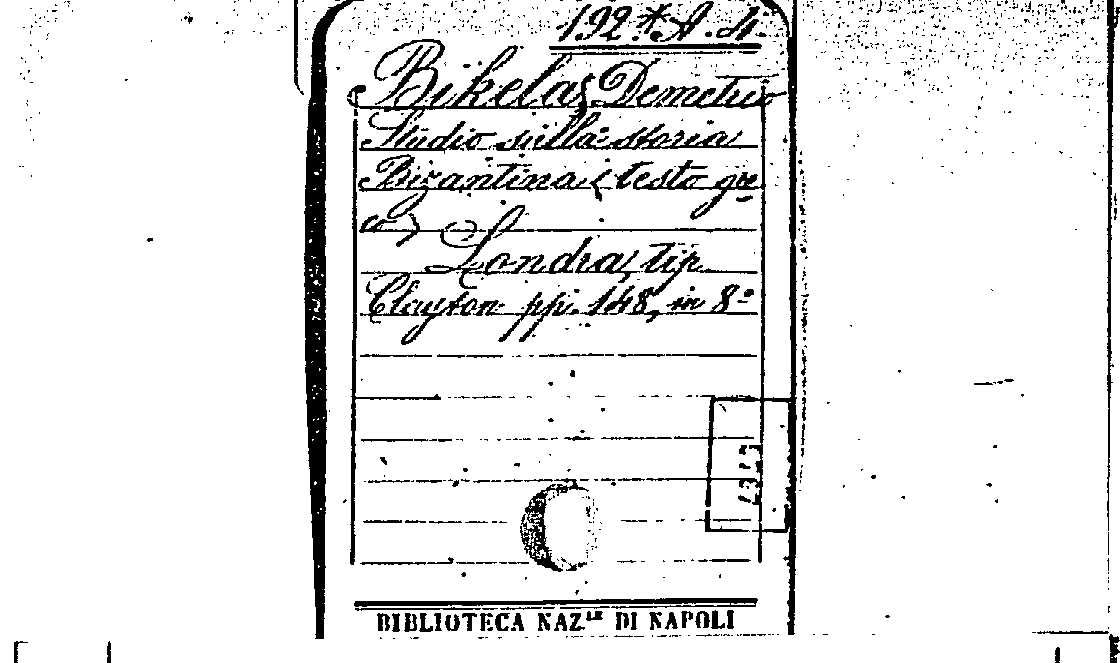 192.* A. 4.
Bikelas Demetrio
Studio sulla storia
Bizantina (testo gre
co)
Londra, tip.
Clayton pp. 148, in 8º
BIBLIOTECA NAZ.LE DI NAPOLI